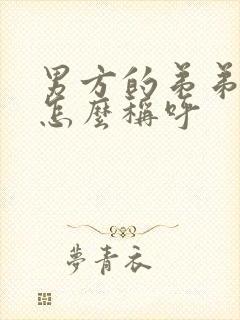 男方的弟弟
怎麼稱呼
夢青衣